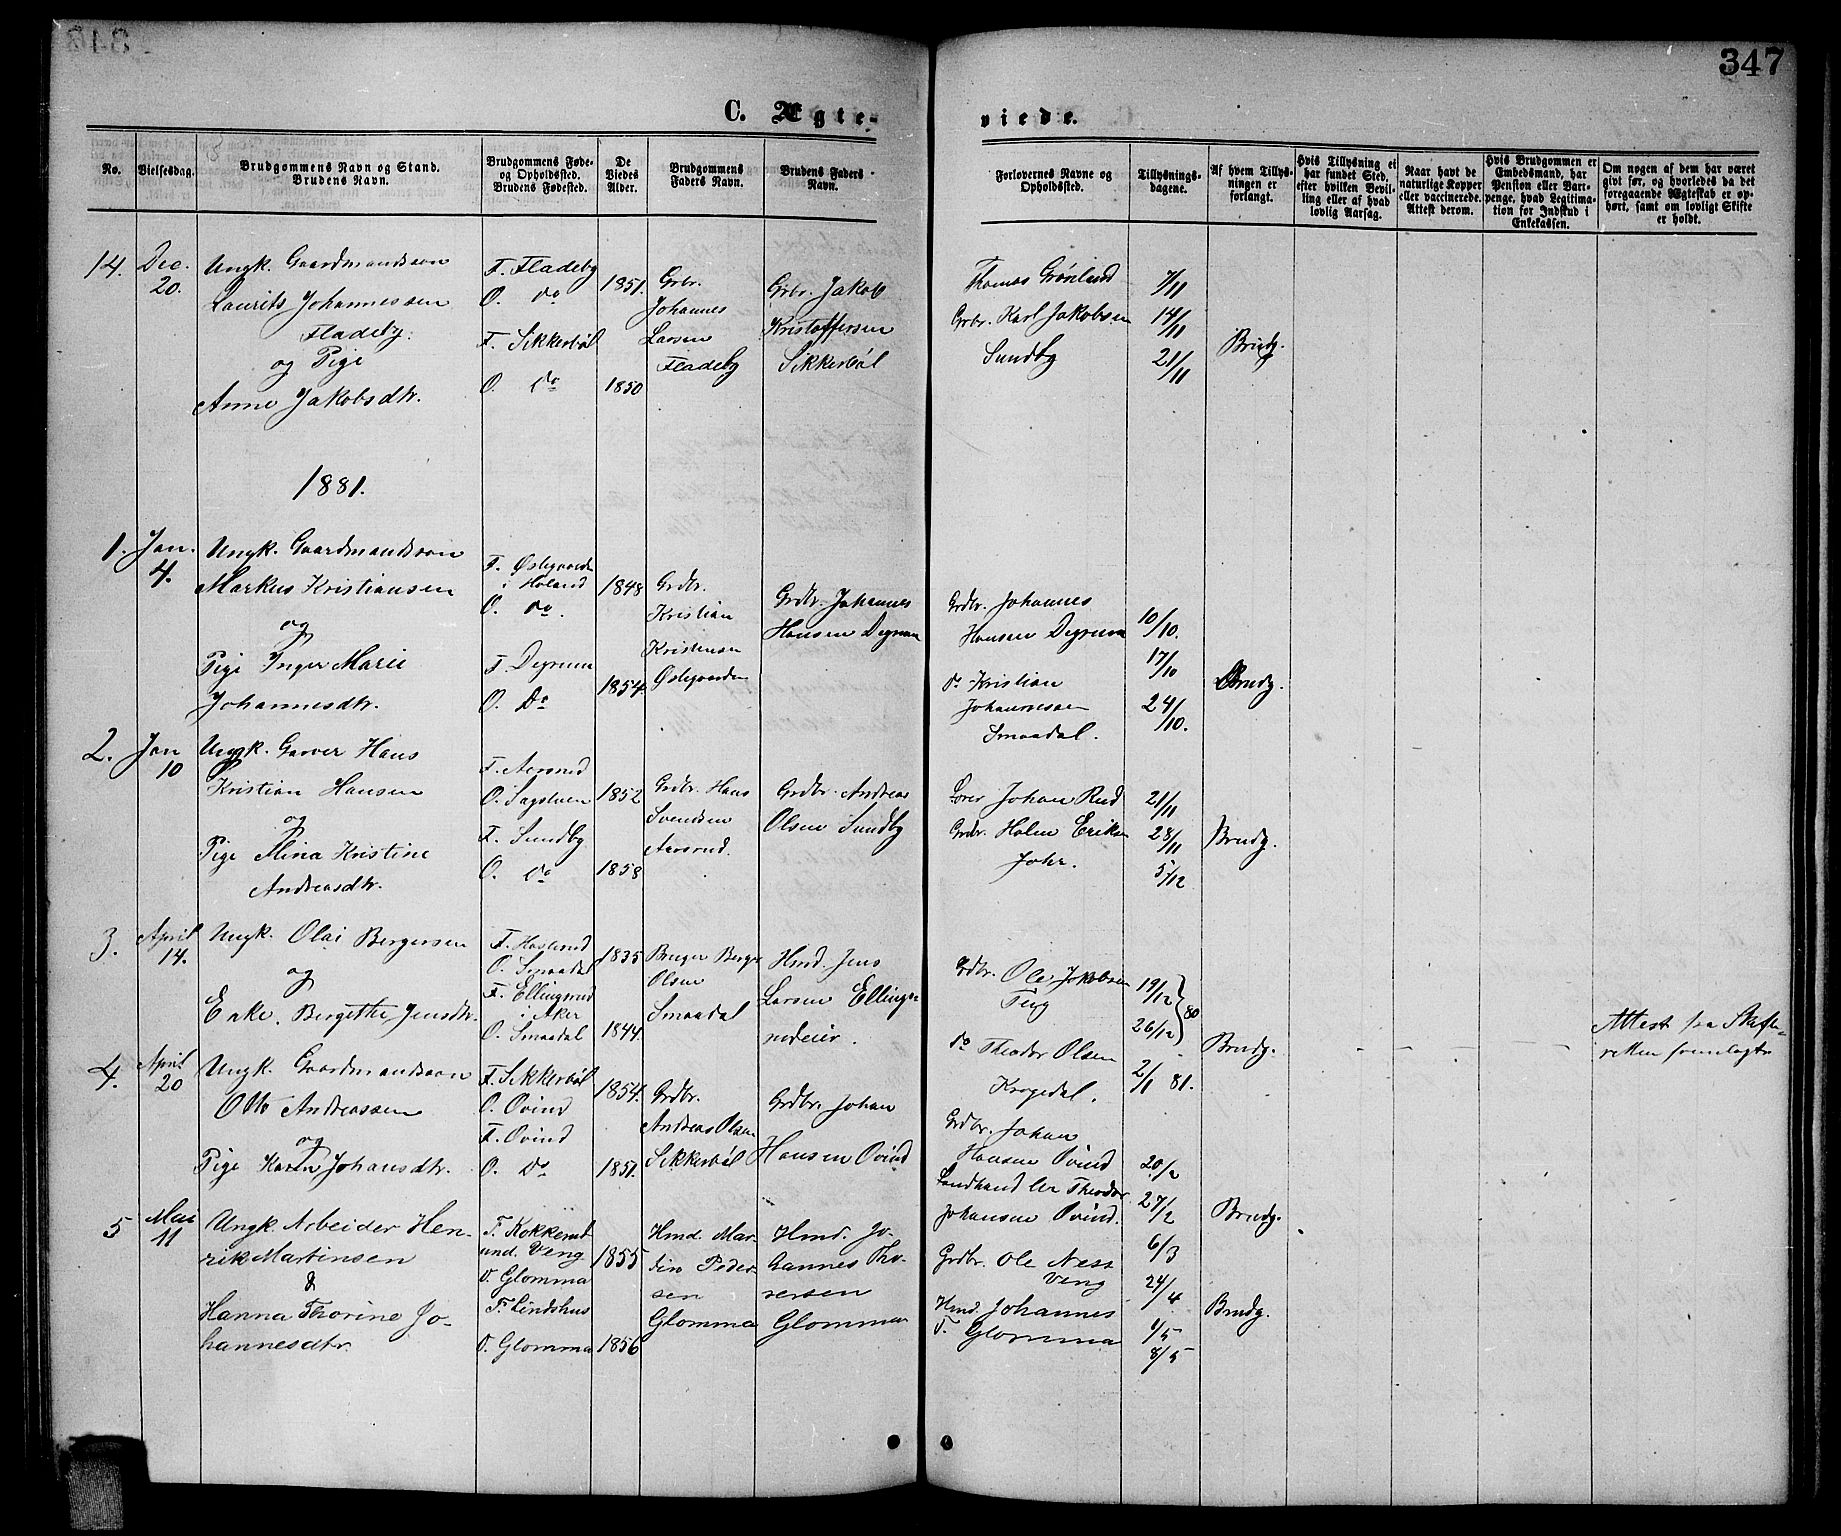 347
C. Ægte-
viede.
No.
Vielsesdag.
Brudgommens Navn og Stand.
Brudens Navn.
Brudgommens Føde-
og Opholdsted.
Brudens Fødested.
De
Viedes
Alder.
Brudgommens
Faders Navn.
Brudens Faders
Navn.
Forlovernes Navne og
Opholdsted.
Tillysnings-
dagene.
Af hvem Tillys-
ningen er
forlangt.
Hvis Tillysning ei
har fundet Sted,
efter hvilken Bevil-
ling eller af hvad
lovlig Aarsag.
Naar havt de
naturlige Kopper
eller vaccinerede.
Attest derom.
Hvis Brudgommen er
Embedsmand, har
Pension eller Vart-
penge, hvad Legitima-
tion for Indskud i
Enkekassen.
Om nogen af dem har været
givt før, og hvorledes da det
foregaaende Ægteskab er op-
hørt, samt om lovligt Skifte
er holdt.
14.
Dec.
20.
Ungk. Gaardmandssøn
Laurits Johannessen
Fladeby.
og Pige
Anne Jakobsdtr.
F. Fladeby
O. do
F. Sikkerbøl
O. do
1851.
1850
Grbr.
Johannes
Larsen
Fladeby
Grbr. Jakob
Kristoffersen
Sikkerbøl
Thomas Grønlund
Grbr. Karl Jakobsen
Sundby
7/11
14/11
21/11
Brudg.
1881.
1.
Jan.
4.
Ungk. Gaardmandssøn
Markus Kristiansen
og
Pige Inger Marie
Johannesdtr.
F. Østegaarden
i Høland
O. do.
F. Degrum
O. Do
1848
1854.
Grdbr.
Kristian
Kristensen
Østegaarden
Grdbr. Johannes
Hansen Degrum
Grdbr. Johannes
Hansen Degrum
do Kristian
Johannesen
Smaadal.
10/10.
17/10
24/10.
Brudg.
2.
Jan
10
Ungk. Garver Hans
Kristian Hansen
og
Pige Mina Kristine
Andreasdtr.
F. Aarsrud
O. Sagstuen
F. Sundby
O. do
1852
1858
Grdbr. Hans
Svendsen
Aarsrud.
Grdbr. Andreas
Olsen Sundby
Johan Rud
Grdbr. Holm Eriksen
21/11
28/11
5/12
Brudg.
3.
April
14.
Ungk. Olai Bergersen
og
Enke. Bergitthe Jensdtr.
F. Haslerud
O. Smaadal
F. Ellingsrud
i Aker
O. Smaadal
1835
1844.
Bruger Berger
Olsen
Smaadal
Hmd. Jens
Larsen Ellings-
rudeier.
Grdbr. Ole Jakobsen
Teig
do Theodor Olsen
Krogedal.
19/12
26/12 } 80
2/1 81.
Brudg.
Attest fra Skifte-
retten fremlagt
4.
April
20
Ungk. Gaardmandssøn
Otto Andreassen
og
Pige Karen Johansdtr.
F. Sikkerbøl
O. Ovind
F. Ovind
O. Do
1854.
1851.
Grdbr.
Andreas Olsen
Sikkerbøl
Grdbr. Johan
Hansen Ovind
Grdbr. Johan
Hansen Ovind
Landhandler Theodor
Johansen Ovind.
20/2
27/2
6/3
Brudg.
5
Mai
11
Ungk. Arbeider Hen-
rik Martinsen
&
Hanna Thorine Jo-
hannesdtr.
F. Kokkerud
und. Veng
O. Glomma
F. Lindshus
O. Glomma
1855
1856
Hmd. Mar-
tin Peder-
sen
Glomma
Hmd. Jo-
hannes Tho-
resen
Glomma
Grdbr. Ole Ness
Veng
Hmd. Johannes
T. Glomma
24/4
1/5
8/5
Brudg.